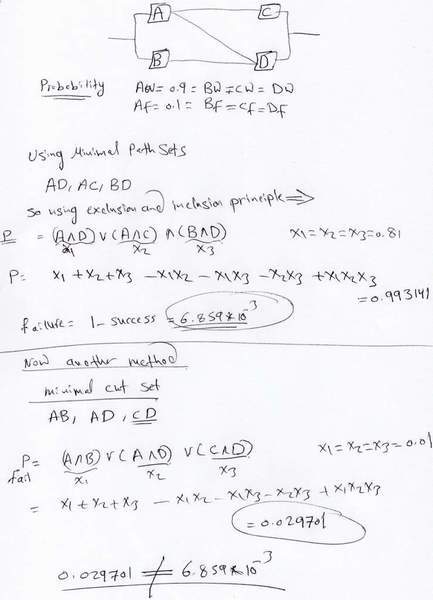 A C
B D
Probability AW = 0.9 = BW = CW = DW
AF = 0.1 = BF = CF = DF
Using Minimal Path Sets
AD, AC, BD
so using exclusion and inclusion principle ⇒
P = (A∧D) ∨ (A∧C) ∧ (B∧D) X1 = X2 = X3 = 0.81
X1 X2 X3
P = X1 + X2 + X3 − X1X2 − X1X3 − X2X3 + X1X2X3
= 0.993141
failure = 1 − success = 6.859*10^-3
Now another method
minimal cut set
AB, AD, CD
P = (A∧B) ∨ (A∧D) ∨ (C∧D) X1 = X2 = X3 = 0.01
fail X1 X2 X3
= X1 + X2 + X3 − X1X2 − X1X3 − X2X3 + X1X2X3
= 0.029701
0.029701 ≠ 6.859*10^-3